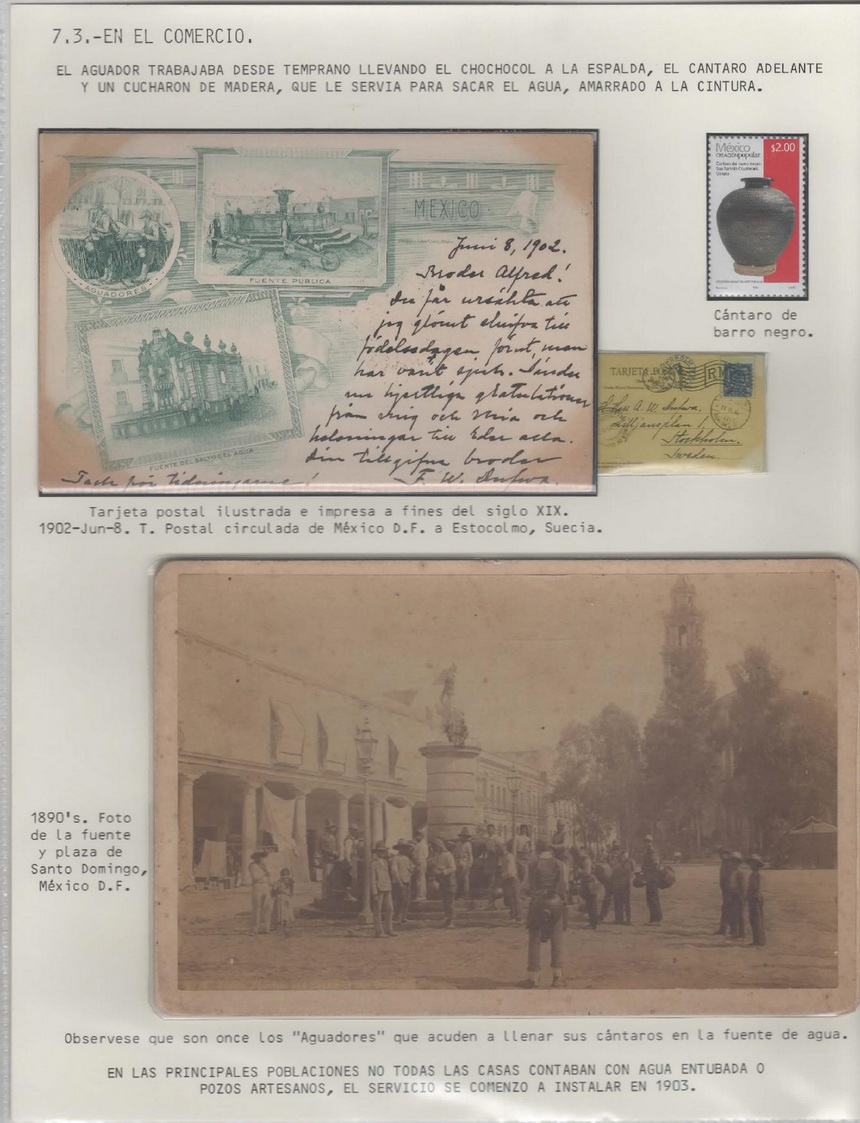 7.3.-EN EL COMERCIO.
EL AGUADOR TRABAJABA DESDE TEMPRANO LLEVANDO EL CHOCHOCOL A LA ESPALDA, EL CANTARO ADELANTE
Y UN CUCHARON DE MADERA, QUE LE SERVIA PARA SACAR EL AGUA, AMARRADO A LA CINTURA.
AGUADORES
FUENTE PUBLICA
MEXICO
FUENTE DEL SALTO DEL AGUA
Juni 8, 1902.
Broder Alfred!
Du får ursäkta att
jag glömt skrifva till
födelsedagen förut, men
har varit sjuk. Sänder
nu hjertliga gratulationer
från mig och Mia och
helsningar till Eder alla.
Din tillgifne broder
F. W.
Tack för tidningarne!
México $2.00
creaciónpopular
Cántaro de barro negro
Cántaro de
barro negro.
TARJETA
RM
A. W.
Lilljansplan 1,
Stockholm.
Sweden.
Tarjeta postal ilustrada e impresa a fines del siglo XIX.
1902-Jun-8. T. Postal circulada de México D.F. a Estocolmo, Suecia.
1890's. Foto
de la fuente
y plaza de
Santo Domingo,
México D.F.
Observese que son once los "Aguadores" que acuden a llenar sus cántaros en la fuente de agua.
EN LAS PRINCIPALES POBLACIONES NO TODAS LAS CASAS CONTABAN CON AGUA ENTUBADA O
POZOS ARTESANOS, EL SERVICIO SE COMENZO A INSTALAR EN 1903.